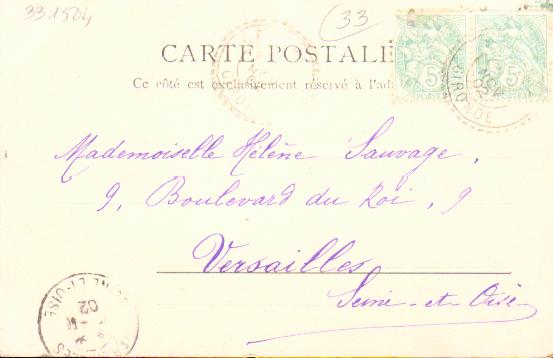 33 1504
33
CARTE POSTALE
Ce côté est exclusivement réservé à l'ad
5c 5c
POSTES
GIRONDE
Mademoiselle Hélène Sauvage,
9, Boulevard du Roi, 9
Versailles
Seine-et-Oise
02